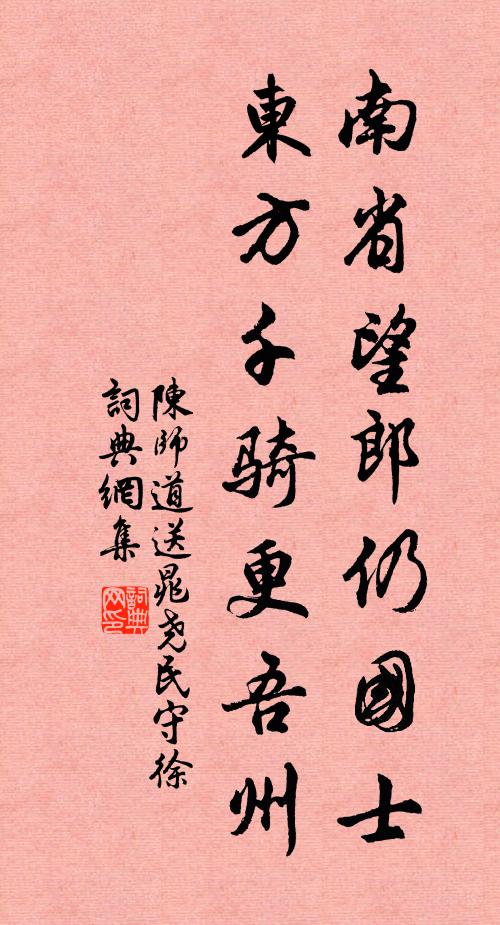 南省望郎仍國士
東方千騎更吾州
陳師道送晁尧民守徐
詞典網集
詞典
网印